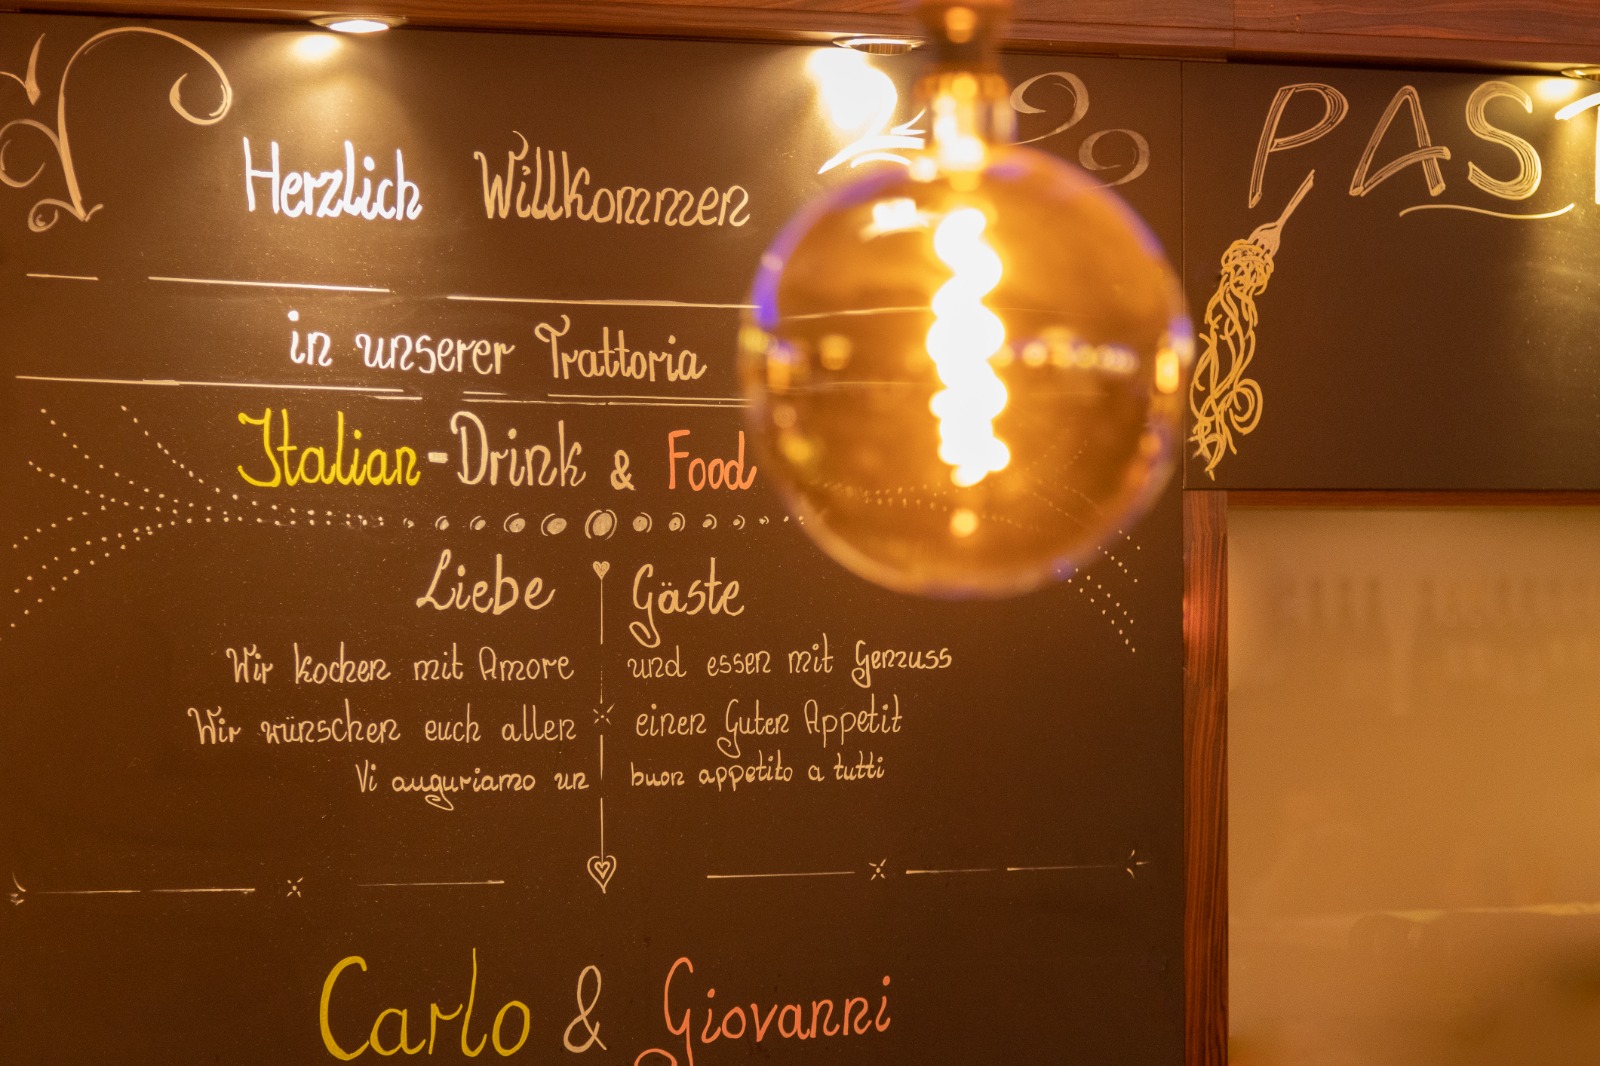 Herzlich Willkommen
in unserer Trattoria
Italian-Drink & Food
Liebe Gäste
Wir kochen mit Amore und essen mit Genuss
Wir wünschen euch allen einen Guten Appetit
Vi auguriamo un buon appetito a tutti
Carlo & Giovanni
PAST